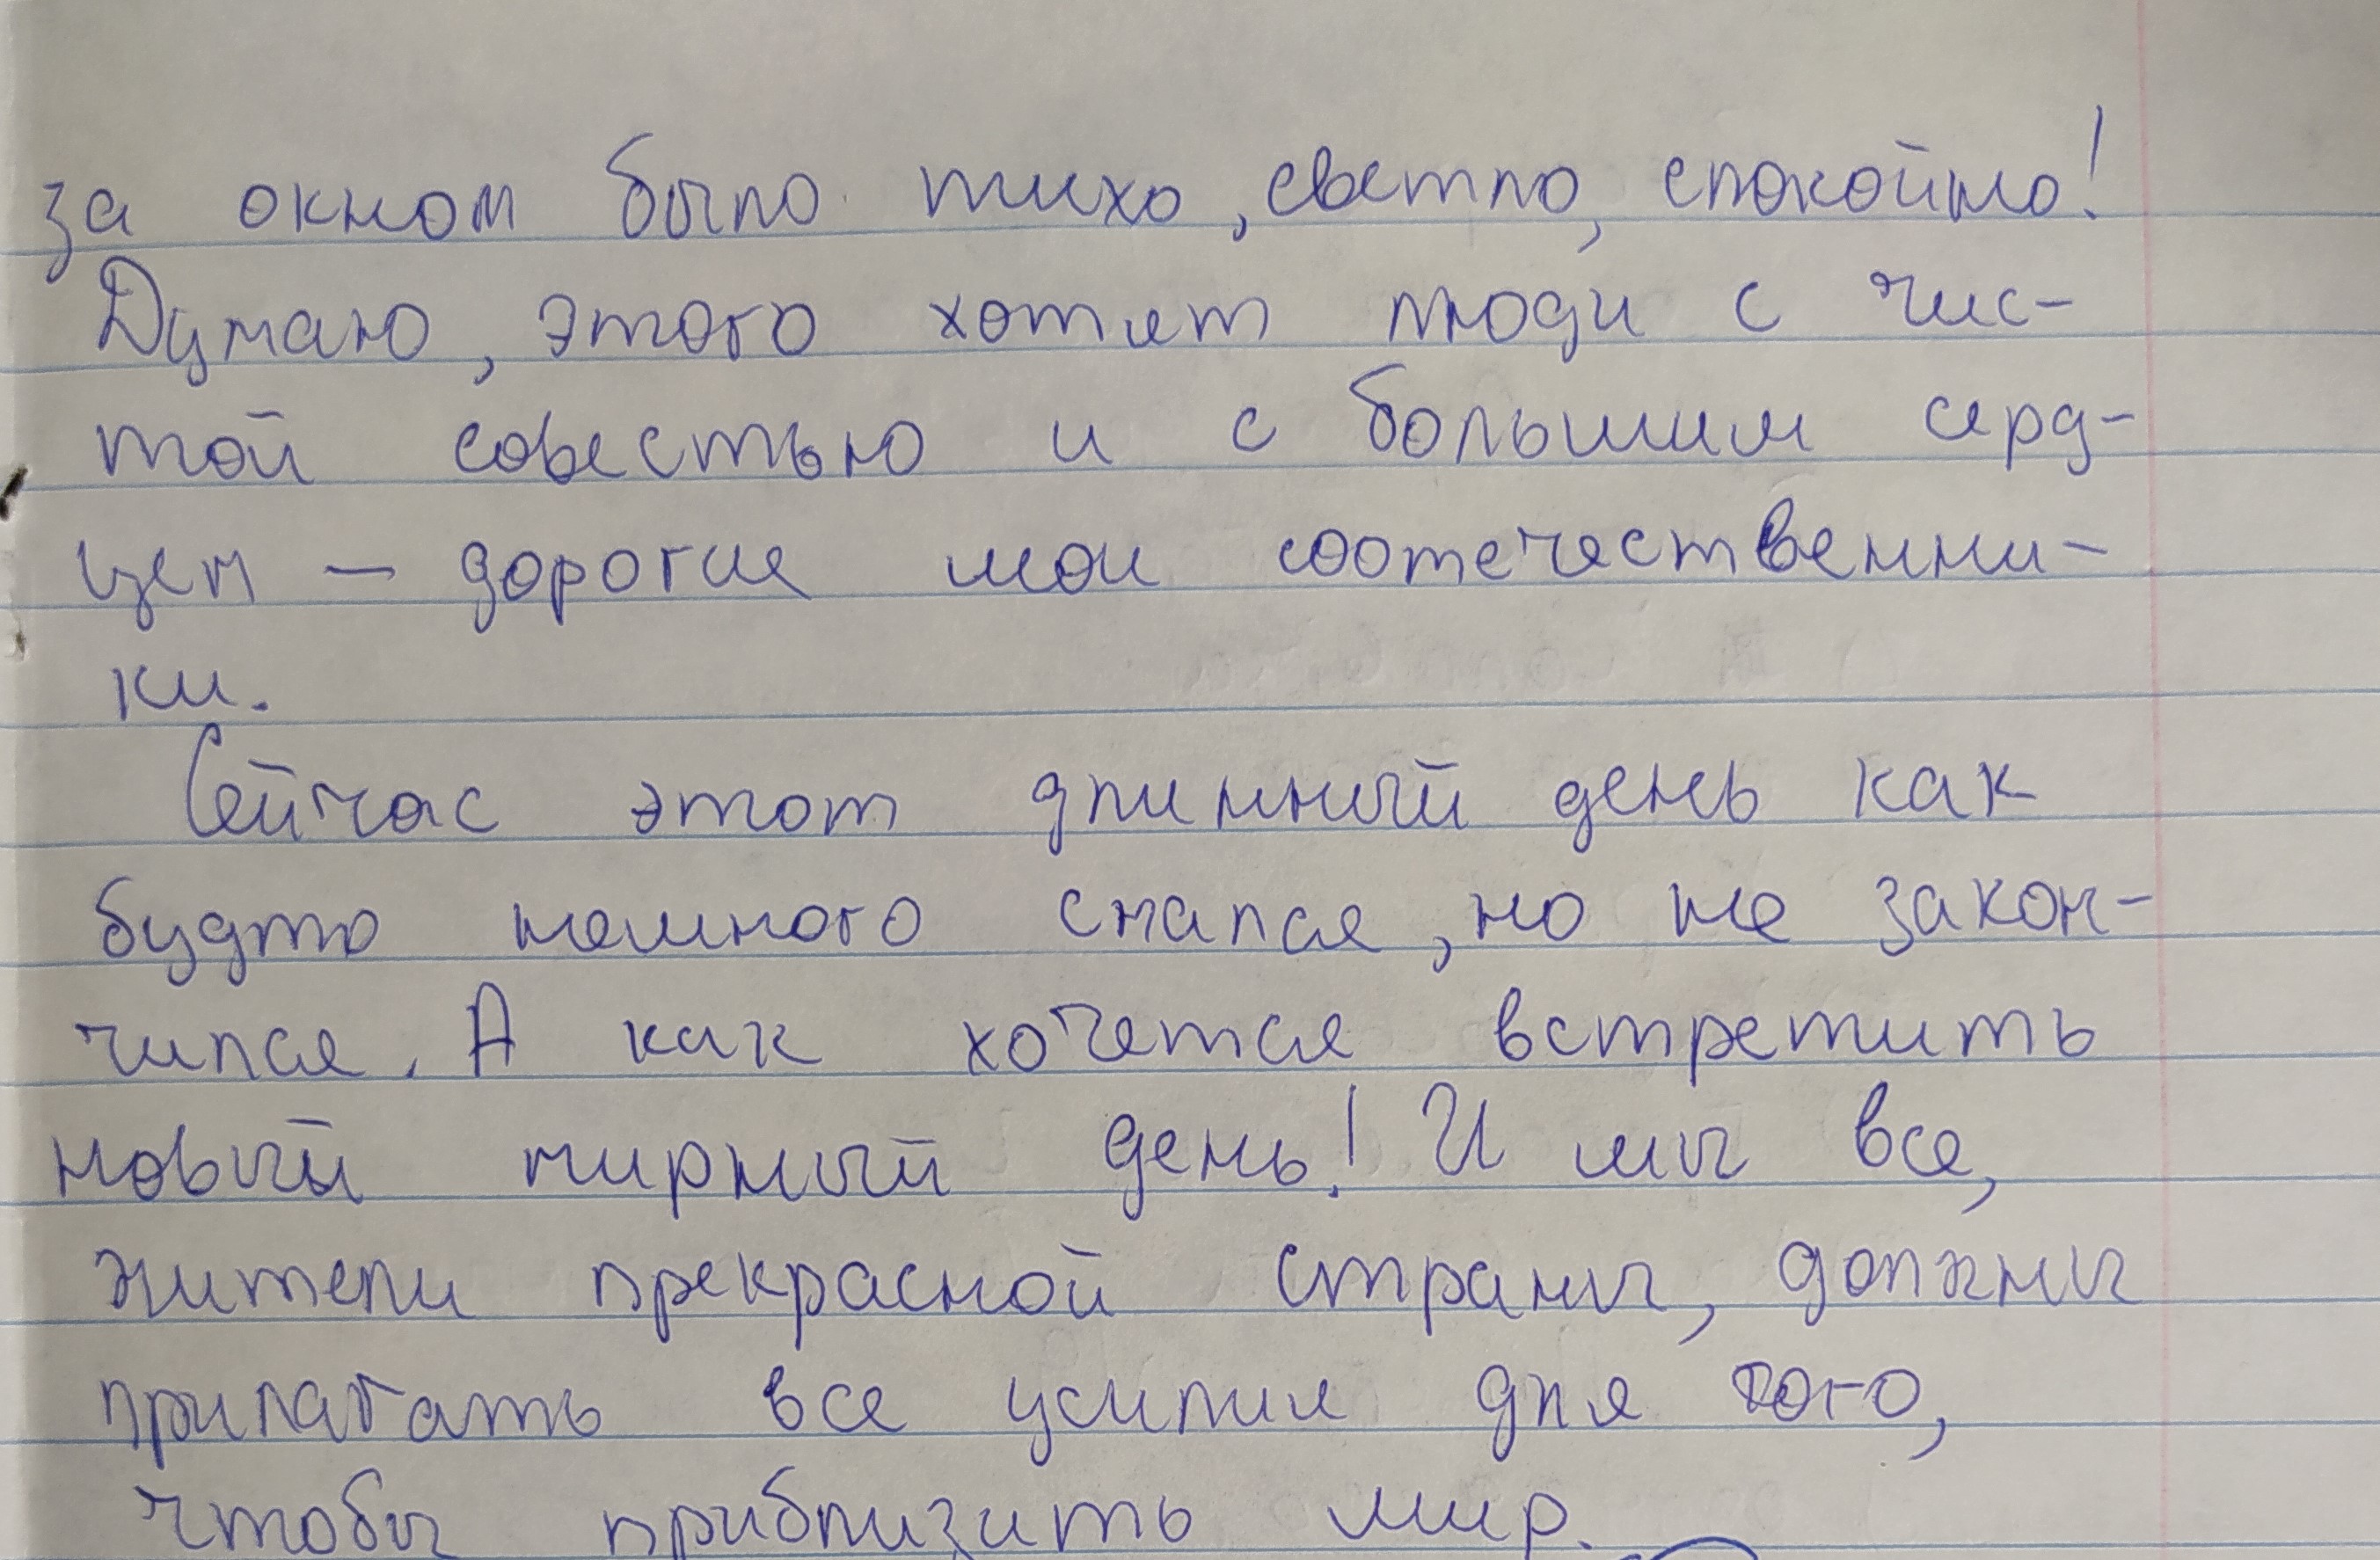 за окном было тихо, светло, спокойно!
Думаю, этого хотят люди с чис-
той совестью и с большим серд-
цем – дорогие мои соотечественни-
ки.
Сейчас этот длинный день как
будто немного сжался, но не закон-
чился. А как хочется встретить
новый мирный день! И мы все,
жители прекрасной страны, должны
прилагать все усилия для того,
чтобы приблизить мир.